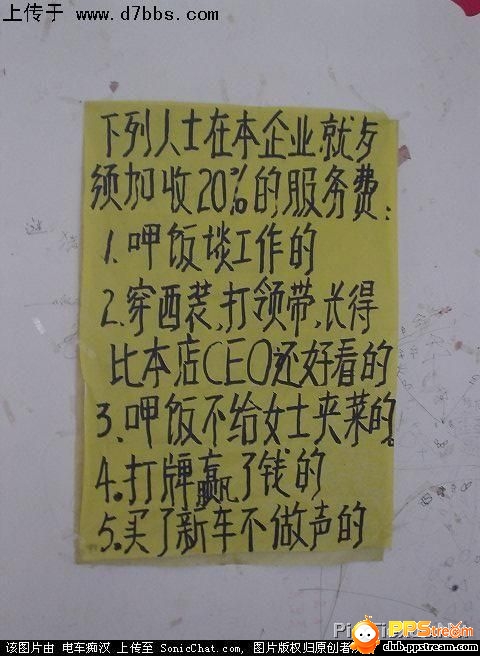 上传于 www.d7bbs.com
下列人士在本企业就歺
须加收20%的服务费:
1.呷饭谈工作的
2.穿西装,打领带,长得
比本店CEO还好看的
3.呷饭不给女士夹菜的。
4.打牌赢了钱的
5.买了新车不做声的
PPStream
club.ppstream.com
该图片由 电车痴汉 上传至 SonicChat.com, 图片版权归原创者